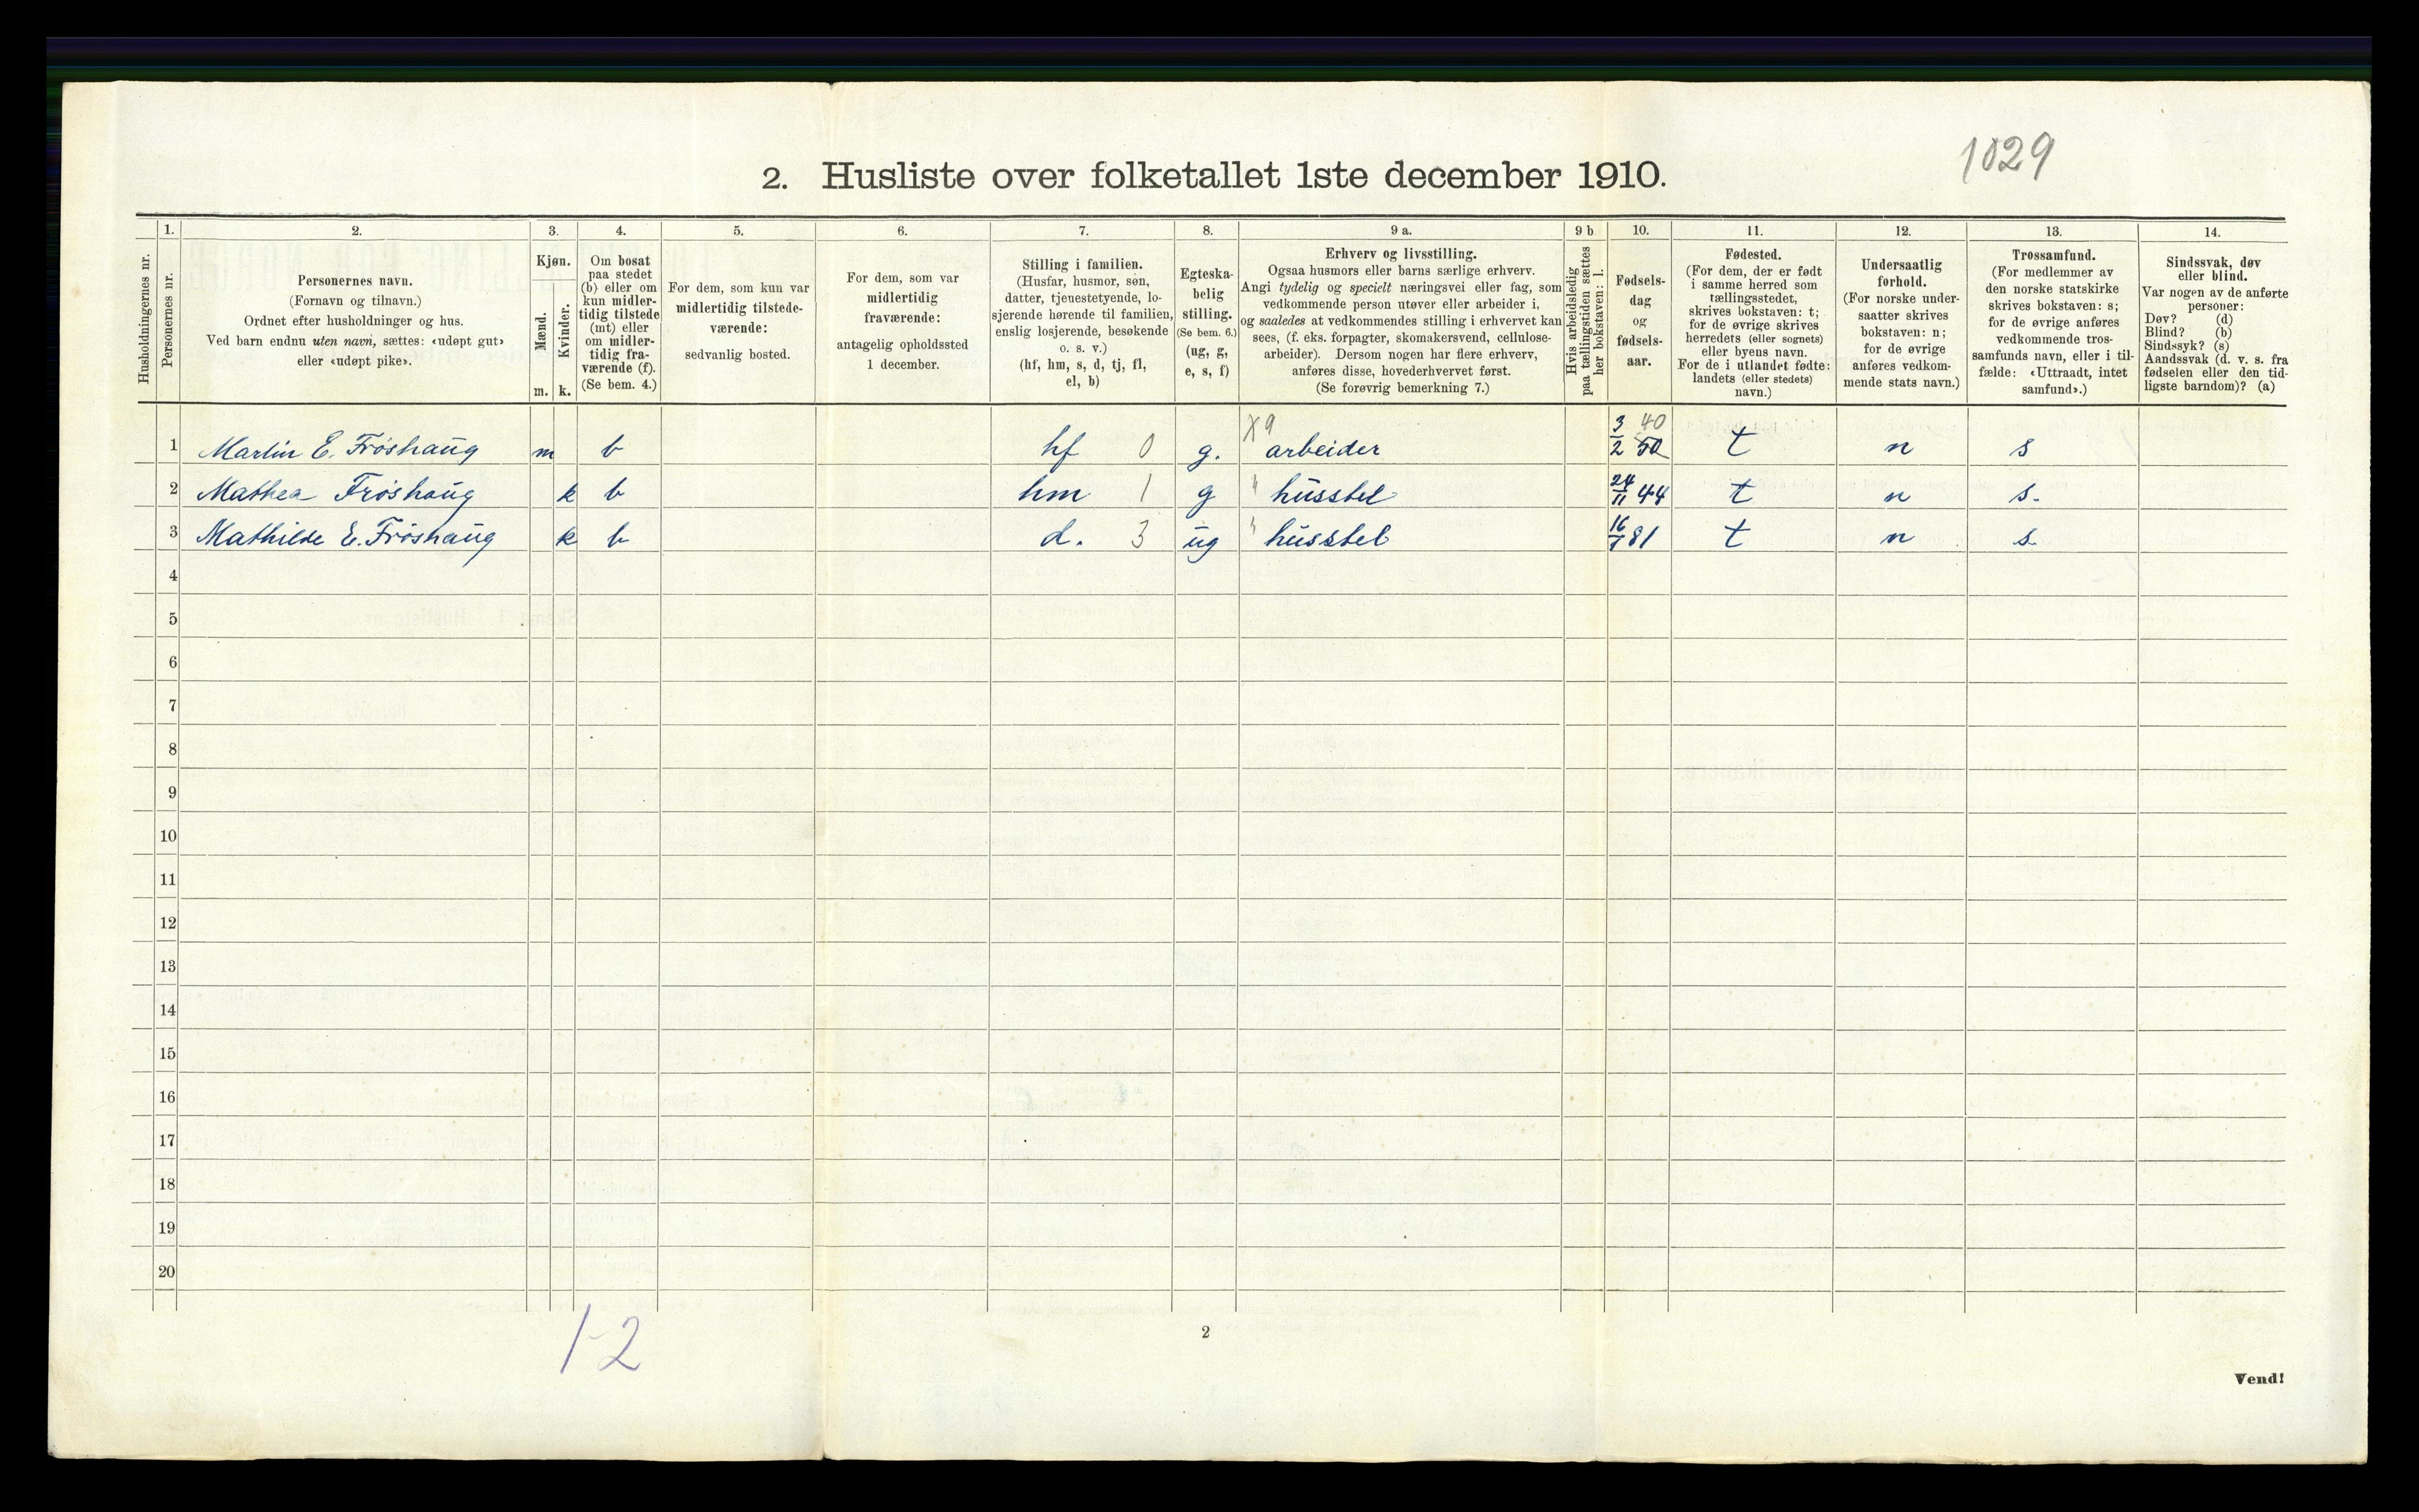 1029
2. Husliste over folketallet 1ste december 1910.
1. 2. 3. 4. 5. 6. 7. 8. 9 a. 9 b 10. 11. 12. 13. 14.
Husholdningernes nr.
Personernes nr.
Personernes navn.
(Fornavn og tilnavn.)
Ordnet efter husholdninger og hus.
Ved barn endnu uten navn, sættes: «udøpt gut»
eller «udøpt pike».
Kjøn.
Mænd.
Kvinder.
m. k.
Om bosat
paa stedet
(b) eller om
kun midler-
tidig tilstede
(mt) eller
om midler-
tidig fra-
værende (f).
(Se bem. 4.)
For dem, som kun var
midlertidig tilstede-
værende:
sedvanlig bosted.
For dem, som var
midlertidig
fraværende:
antagelig opholdssted
1 december.
Stilling i familien.
(Husfar, husmor, søn,
datter, tjenestetyende, lo-
sjerende hørende til familien,
enslig losjerende, besøkende
o. s. v.)
(hf, hm, s, d, tj, fl,
el, b)
Egteska-
belig
stilling.
(Se bem. 6.)
(ug, g,
e, s, f)
Erhverv og livsstilling.
Ogsaa husmors eller barns særlige erhverv.
Angi tydelig og specielt næringsvei eller fag, som
vedkommende person utøver eller arbeider i,
og saaledes at vedkommendes stilling i erhvervet kan
sees, (f. eks. forpagter, skomakersvend, cellulose-
arbeider). Dersom nogen har flere erhverv,
anføres disse, hovederhvervet først.
(Se forøvrig bemerkning 7.)
Hvis arbeidsledig
paa tællingstiden sættes
her bokstaven: l.
Fødsels-
dag
og
fødsels-
aar.
Fødested.
(For dem, der er født
i samme herred som
tællingsstedet,
skrives bokstaven: t;
for de øvrige skrives
herredets (eller sognets)
eller byens navn.
For de i utlandet fødte:
landets (eller stedets)
navn.)
Undersaatlig
forhold.
(For norske under-
saatter skrives
bokstaven: n;
for de øvrige
anføres vedkom-
mende stats navn.)
Trossamfund.
(For medlemmer av
den norske statskirke
skrives bokstaven: s;
for de øvrige anføres
vedkommende tros-
samfunds navn, eller i til-
fælde: «Uttraadt, intet
samfund».)
Sindssvak, døv
eller blind.
Var nogen av de anførte
personer:
Døv? (d)
Blind? (b)
Sindssyk? (s)
Aandssvak (d. v. s. fra
fødselen eller den tid-
ligste barndom)? (a)
1 Martin E. Frøshaug m b hf 0 g. X9 arbeider 3/2 40 50 t n s
2 Mathea Frøshaug k b hm 1 g " husstel 24/11 44 t n s.
3 Mathilde E. Frøshaug k b d. 3 ug " husstel 16/7 81 t n s.
4
5
6
7
8
9
10
11
12
13
14
15
16
17
18
19
20
1-2
2
Vend!